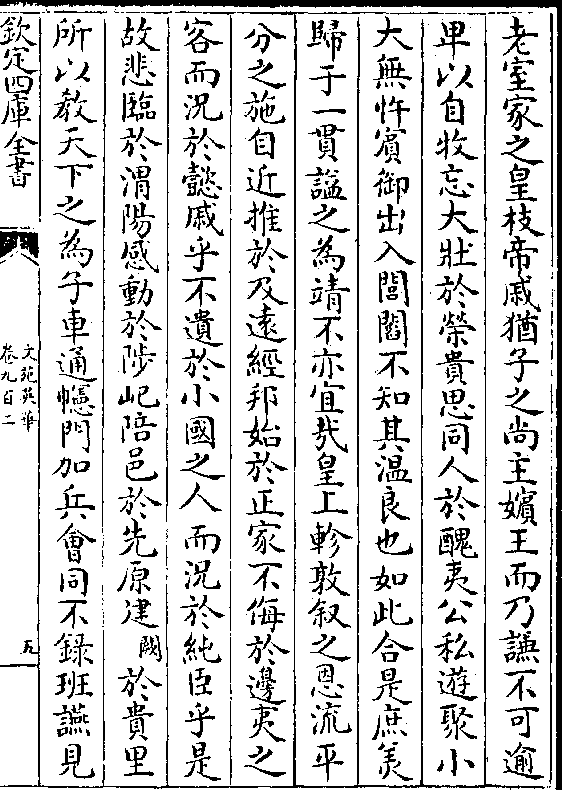 老室家之皇枝帝戚猶子之尚主嬪王而乃謙不可逾
卑以自牧忘大壯於榮貴思同人於醜夷公私遊聚小
大無忤賓御出入閭閻不知其溫良也如此合是庶羙
歸于一貫諡之為靖不亦宜哉皇上軫敦叙之恩流平
分之施自近推於及遠經邦始於正家不侮於邊夷之
客而況於懿戚乎不遺於小國之人而況於純臣乎是
故悲臨於渭陽感動於陟屺陪邑於先原建闕於貴里
所以教天下之為子車通幰門加兵會同不錄班讌見
欽定四庫全書
文苑英華
卷九百二
五